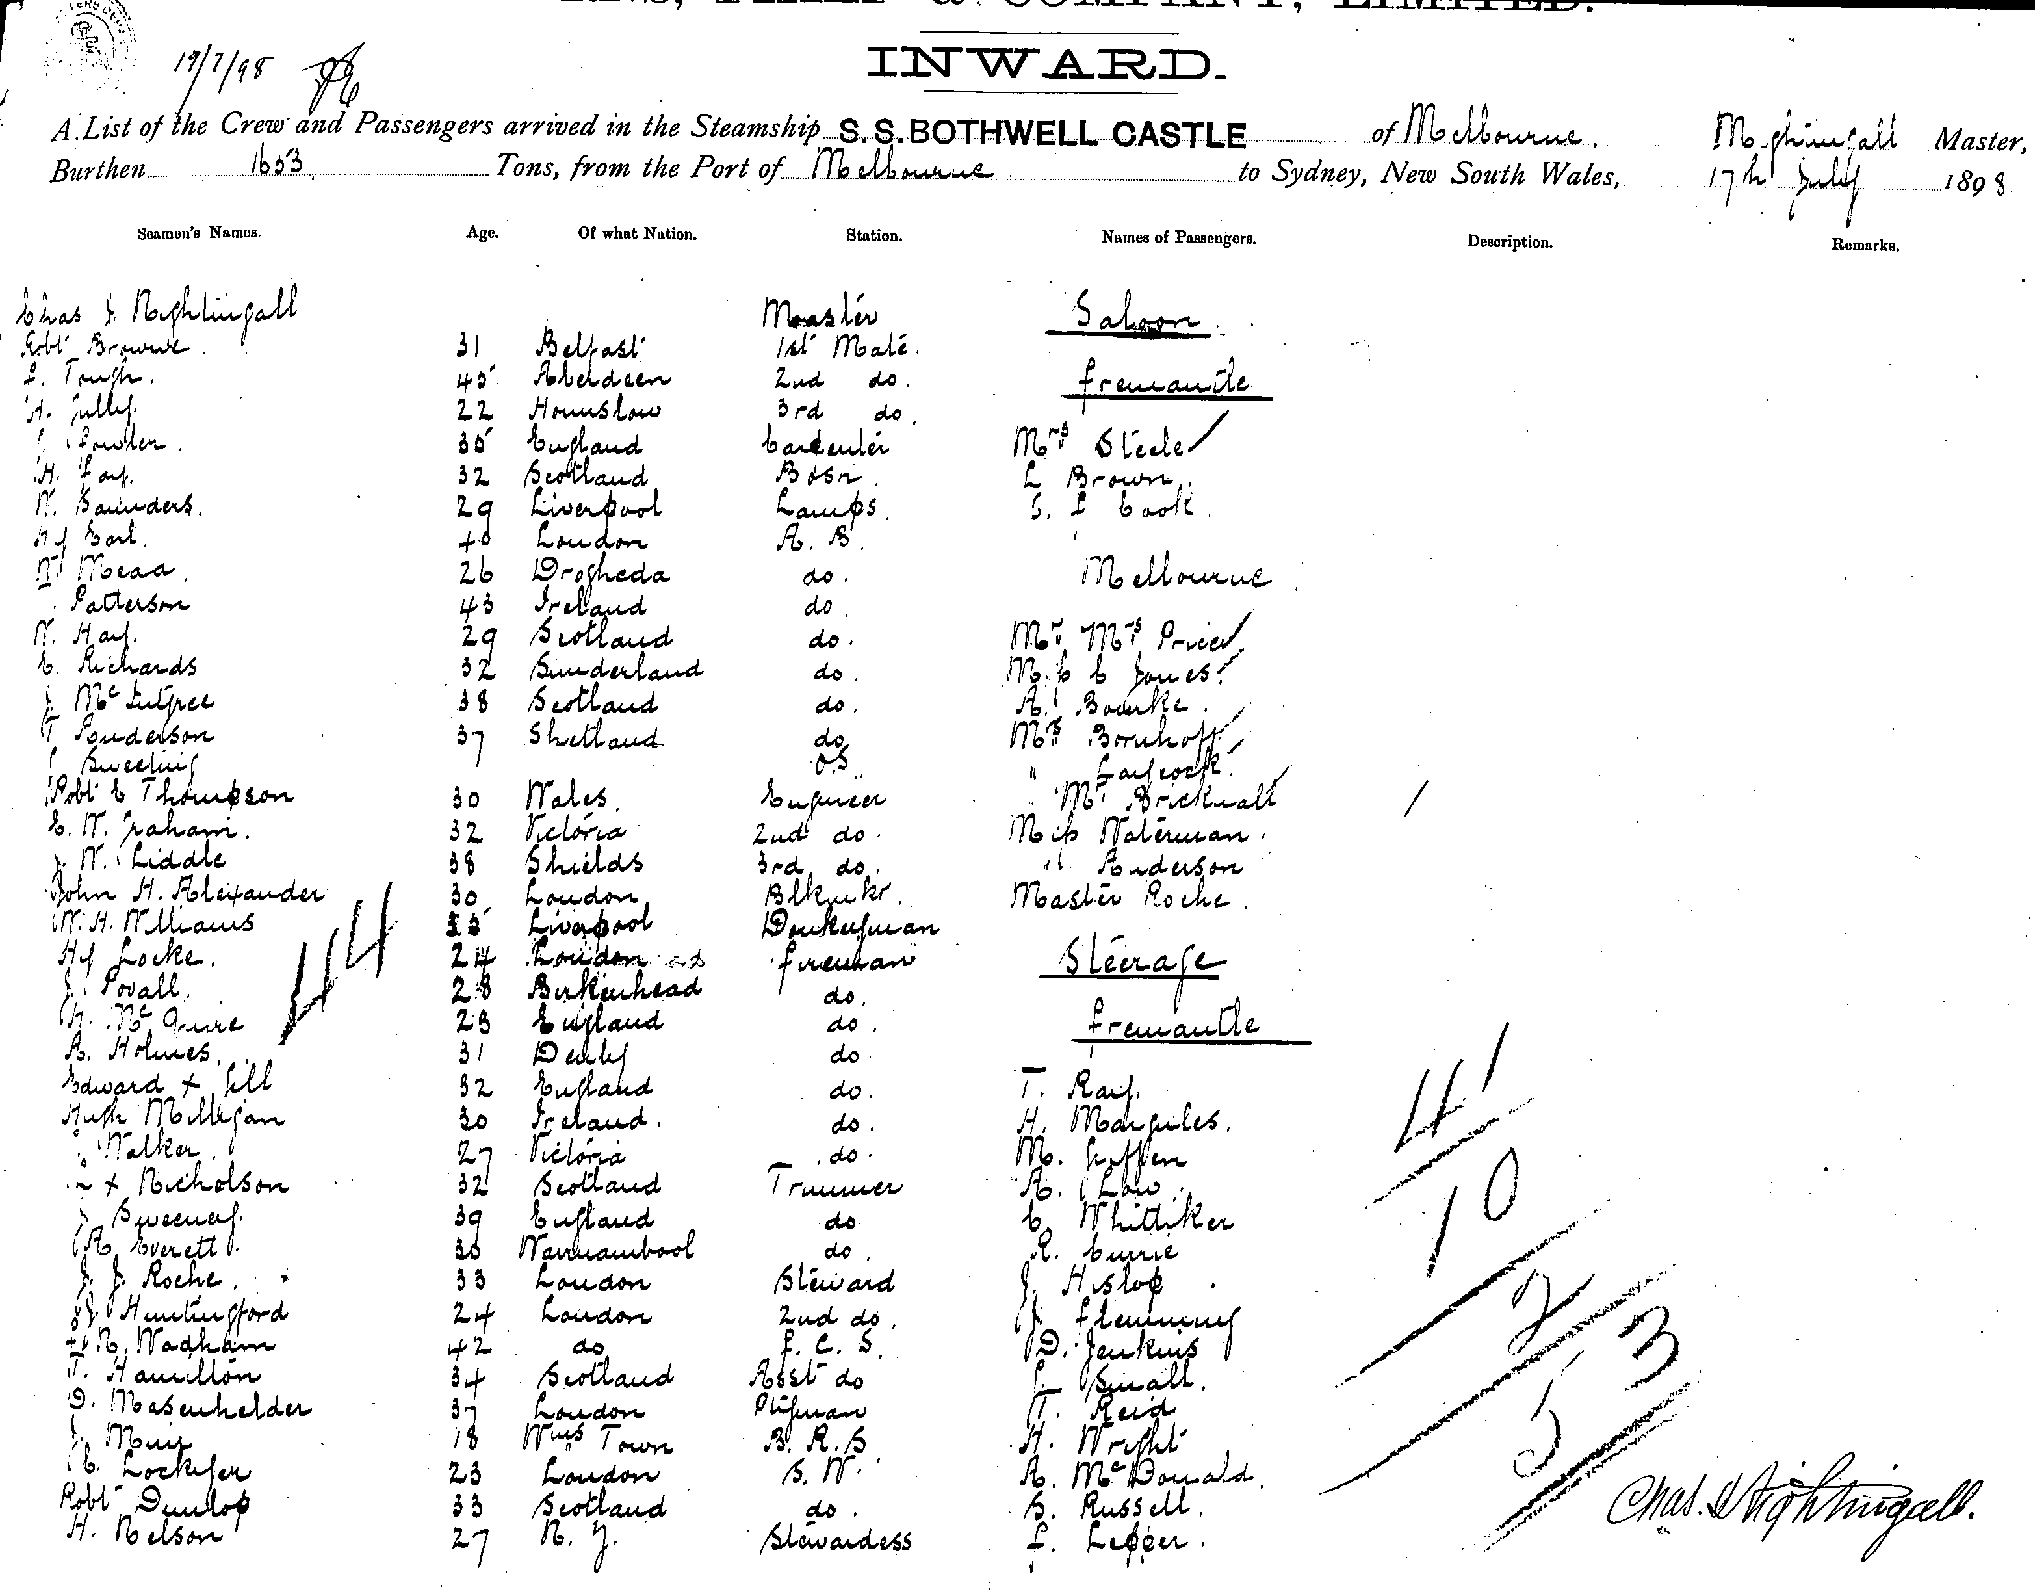 & COMPANY, LIMITED.
19/7/98
INWARD.
A List of the Crew and Passengers arrived in the Steamship S.S. BOTHWELL CASTLE of Melbourne, Nightingall Master,
Burthen 1653 Tons, from the Port of Melbourne to Sydney, New South Wales, 17th July 1898
Seamen's Names. Age. Of what Nation. Station. Names of Passengers. Description. Remarks.
Chas J. Nightingall Master Saloon
Robt Browne 31 Belfast 1st Mate.
Tough. 45 Aberdeen 2nd do. Fremantle
H. Jully 22 Hounslow 3rd do.
Fowler. 35 England Carpenter Mrs Steele
H. Fay. 32 Scotland Bosn. L Brown
W. Saunders. 29 Liverpool Lamps. S. F Cook.
Hy Earl. 40 London A. B.
Mead. 26 Drogheda do. Melbourne
Patterson 43 Ireland do.
W. Hay. 29 Scotland do. Mr Mrs Price
C. Richards 32 Sunderland do. Miss C Jones
J. McEntyree 38 Scotland do. A. Bourke.
T Anderson 37 Shetland do Mrs Bornhoff
Sweeting OS " Laycock.
Robt E Thompson 30 Wales. Engineer " Mr Bricknall
E. W. Graham. 32 Victoria 2nd do. Miss Waterman.
J. W. Liddle 38 Shields 3rd do. " Anderson
John H. Alexander 30 London Blksmkr. Master Roche.
W. H. Williams Liverpool Donkeyman
Hy Locke. 24 London Fireman Steerage
J. Povall. 28 Birkenhead do.
McGuire 23 England do. Fremantle
A. Holmes. 31 Derby do.
Edward + Gill 32 England do. T. Ray.
Hugh Milligan 30 Ireland. do. H. Margules.
Walker. 27 Victoria do. M. Giffen
+ Nicholson 32 Scotland Trimmer A. Low
J Sweeney. 39 England do C. Whittiker
A. Everett. 35 Warrnambool do. R. Currie
J. J. Roche. 33 London Steward J. Hislop
J. Huntingford 24 London 2nd do. J. Flemming
N. Wadham 42 do F. C. S. D. Jenkins
T. Hamilton 34 Scotland Asst do Small.
D. Masenhelder 37 London Ptryman T. Reid
J. Muir 18 Wms Town B. R. S H. Wright
Lockyer 23 London S. W. A. McDonald.
Robt Dunlop 33 Scotland do. S. Russell.
H. Nelson 27 N. Z. Stewardess F. Lepper.
44
41
10
2
53
Chas. J Nightingall.